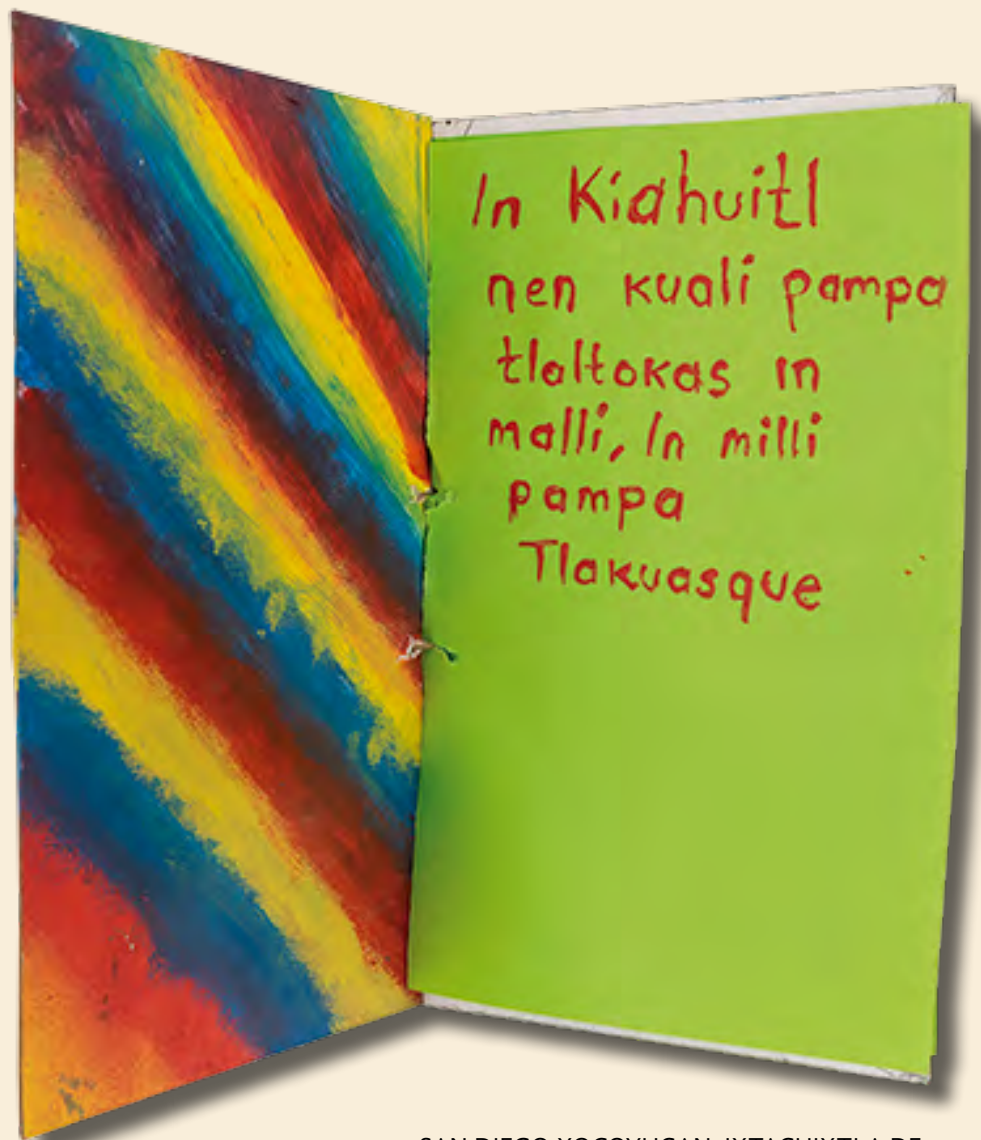 In Kiahuitl
nen kuali pampa
tlaltokas in
malli, In milli
pampa
Tlakuasque
SAN DIEGO XOCOYUCAN, IXTACUIXTLA DE